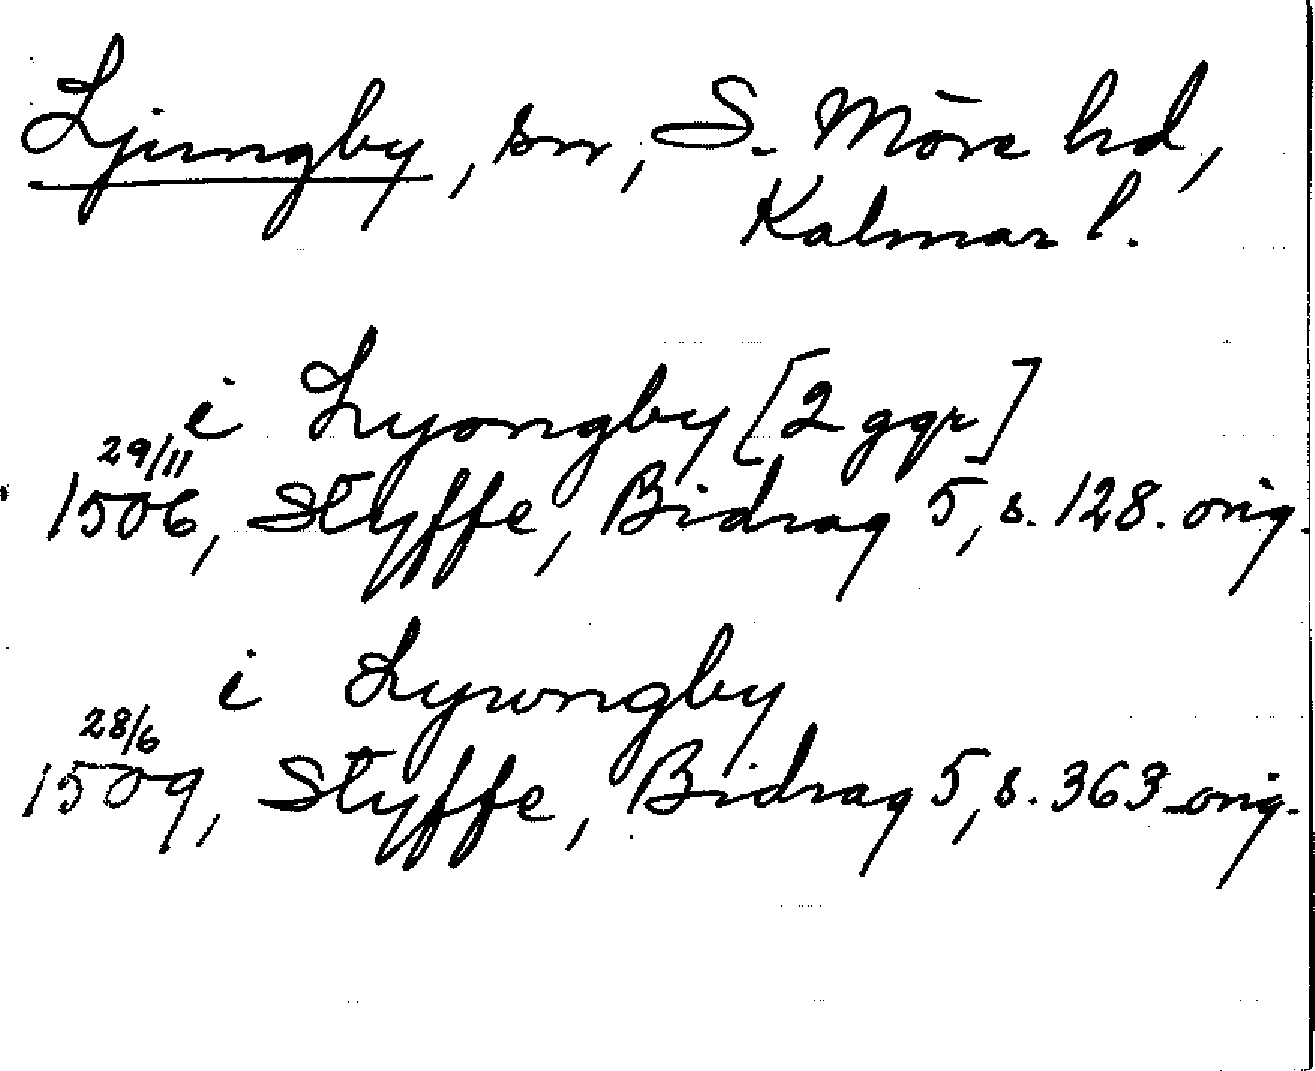 Ljungby, sn, S. Möre hd,
Kalmar l.
i Lyongby [2 ggr]
29/11
1506, Styffe, Bidrag 5, s. 128. orig.
i Lywngby
28/6
1509, Styffe, Bidrag 5, s. 363 orig.